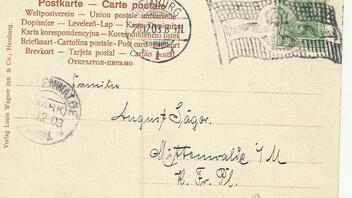 Postkarte — Carte postale
Weltpostverein — Union postale universelle
Dopisnice — Levelező-Lap —
Karta korespondencyjna — Korespondenční listek
Briefkaart — Cartolina postale — Post card —
Brevkort — Tarjeta postal — Cartão postal
Открытое-письмо
Familie
August Jäger.
Mittenwalde i/M
Verlag Louis Wagner jun. & Co., Hamburg.